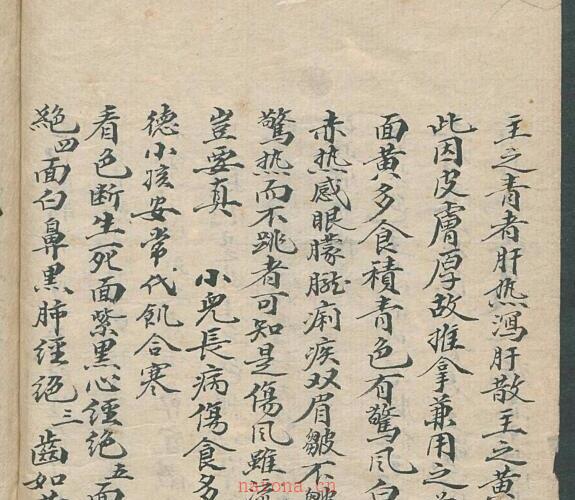 王之青者肝热瀉肝散王之黄
此因皮膚厚故推拿兼用之
面黄多食積青色有驚風白
赤热感眼朦朧痢疾双眉皺不皺
驚热而不跳者可知是傷風雖
豈要真 小兒長病傷食多
德小孩安常代飢合寒
看色断生死面紫黑心經絶五面
絶四面白鼻黑肺經绝三齒如黄
nayona.cn